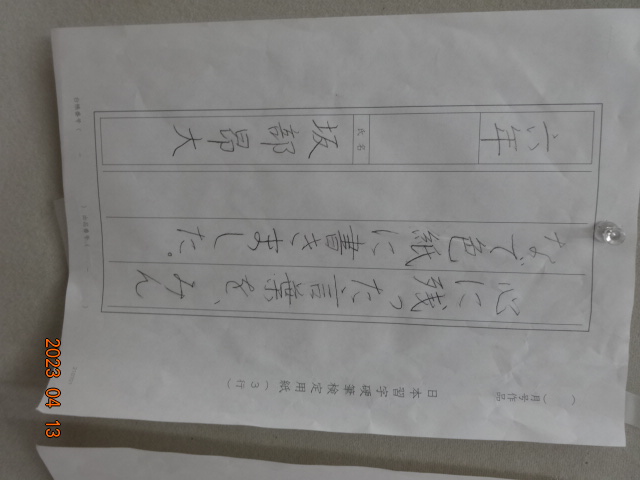 日本習字硬筆検定用紙（3行）
（　）月号作品
心に残った言葉を、みん
なで色紙に書きました。
六年
氏名
坂部昂大
2023 04 13